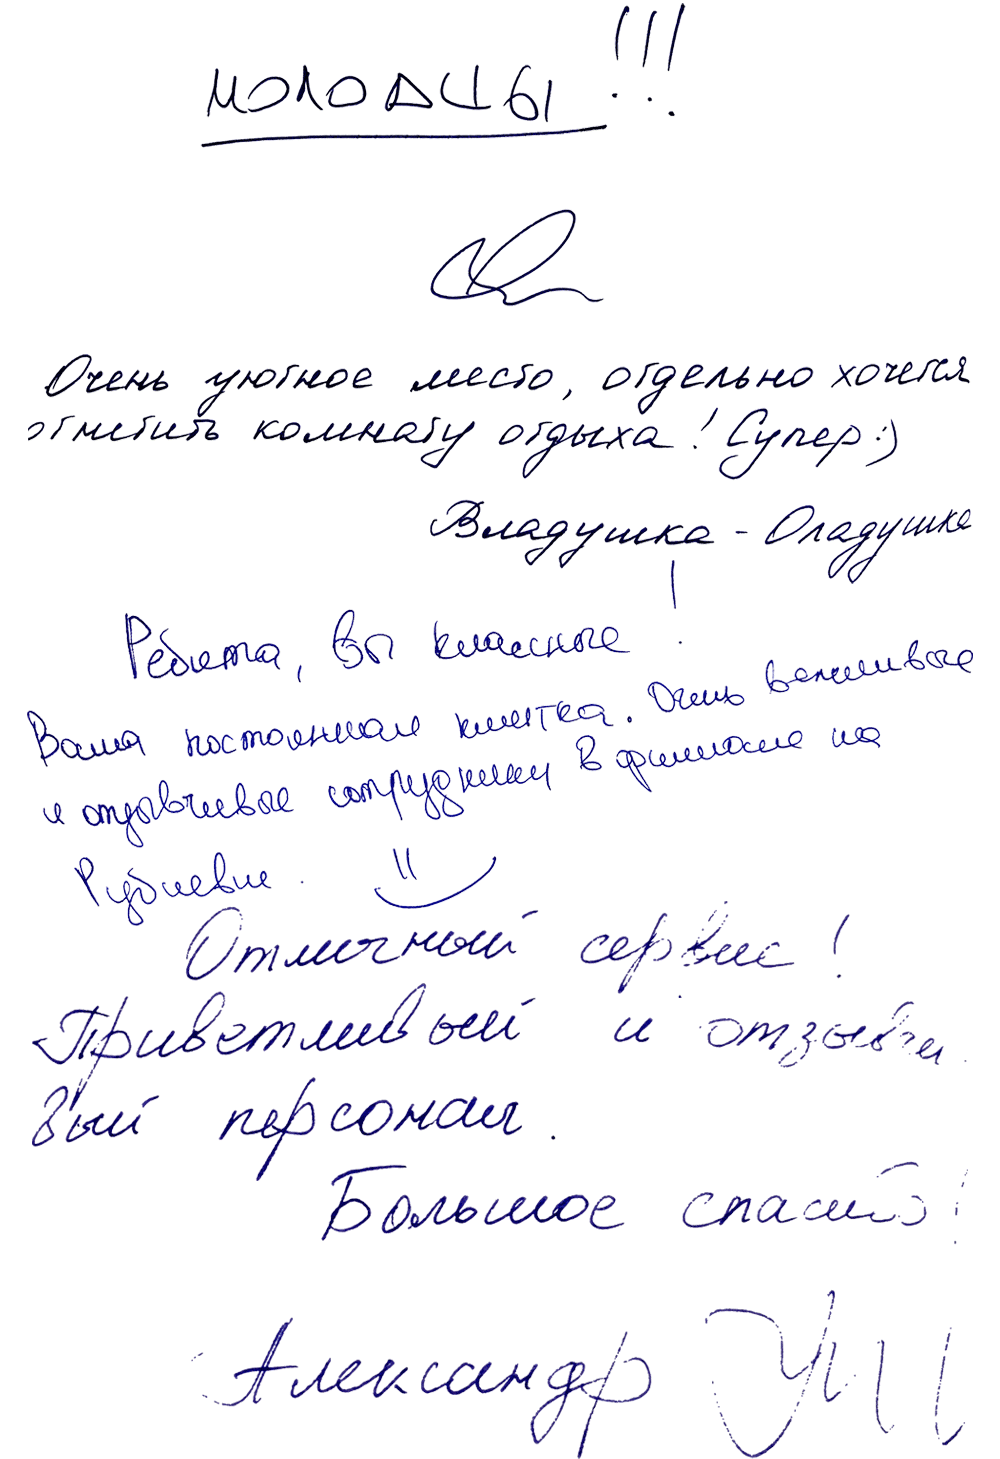 МОЛОДЦЫ!!!
Очень уютное место, отдельно хочется
отметить комнату отдыха! Супер:)
Владушка - Оладушка
Ребята, Вы классные!
Ваша постоянная клиентка. Очень вежливые
и отзывчивые сотрудники в филиале на
Рублевке.
Отличный сервис!
Приветливый и отзывчи
вый персонал.
Большое спасибо!
Александр